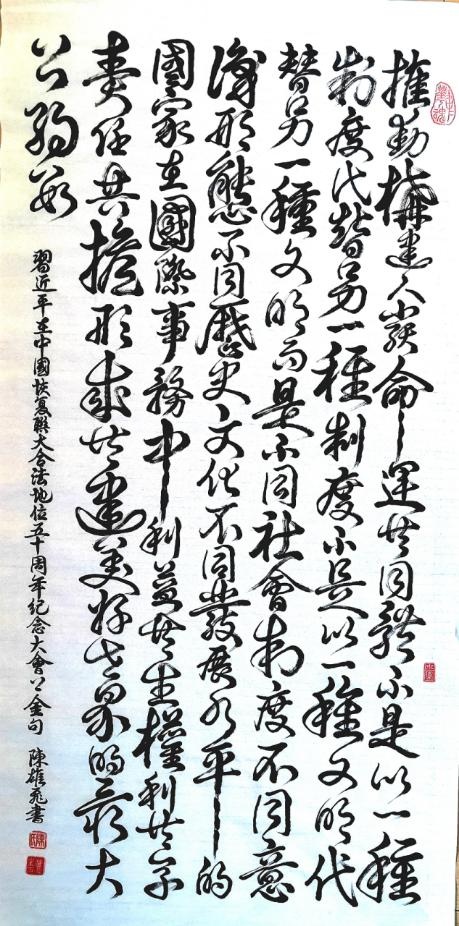 推動構建人類命運共同體不是以一種
制度代替另一種制度不是以一種文明代
替另一種文明而是不同社會制度不同意
識形態不同歷史文化不同發展水平的
國家在國際事務中利益共生權利共享
責任共擔形成共建美好世界的最大
公約數
習近平在中國恢復聯大合法地位五十周年紀念大會金句 陳雄飛書